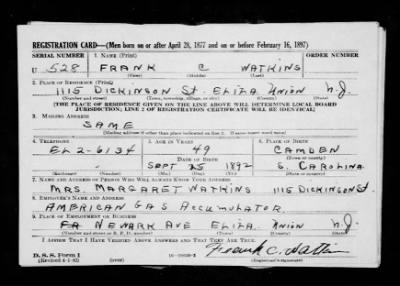 REGISTRATION CARD—(Men born on or after April 28, 1877 and on or before February 16, 1897)
SERIAL NUMBER 1. NAME (Print) ORDER NUMBER
U 528 FRANK C WATKINS
(First) (Middle) (Last)
2. PLACE OF RESIDENCE (Print)
1115 DICKINSON St. ELIZA. UNION N.J.
(Number and street) (Town, township, village, or city) (County) (State)
[THE PLACE OF RESIDENCE GIVEN ON THE LINE ABOVE WILL DETERMINE LOCAL BOARD
JURISDICTION; LINE 2 OF REGISTRATION CERTIFICATE WILL BE IDENTICAL]
3. MAILING ADDRESS
SAME
[Mailing address if other than place indicated on line 2. If same insert word same]
4. TELEPHONE 5. AGE IN YEARS 6. PLACE OF BIRTH
EL 2-6134 49 CAMDEN
DATE OF BIRTH (Town or county)
SEPT 25 1892 S. CAROLINA
(Exchange) (Number) (Mo.) (Day) (Yr.) (State or country)
7. NAME AND ADDRESS OF PERSON WHO WILL ALWAYS KNOW YOUR ADDRESS
MRS. MARGARET WATKINS 1115 DICKINSON St.
8. EMPLOYER'S NAME AND ADDRESS
AMERICAN GAS ACCUMULATOR.
9. PLACE OF EMPLOYMENT OR BUSINESS
NEWARK AVE ELIZA. UNION N.J.
(Number and street or R. F. D. number) (Town) (County) (State)
I AFFIRM THAT I HAVE VERIFIED ABOVE ANSWERS AND THAT THEY ARE TRUE.
D. S. S. Form 1
(Revised 4-1-42) (over) Frank C. Watkins
(Registrant's signature)